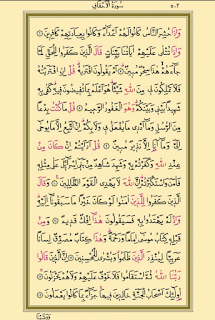 سُورَةُ الْأَحْقَافِ ٥٠٢
وَإِذَا حُشِرَ النَّاسُ كَانُوا لَهُمْ أَعْدَاءً وَكَانُوا بِعِبَادَتِهِمْ كَافِرِينَ ٦
وَإِذَا تُتْلَى عَلَيْهِمْ آيَاتُنَا بَيِّنَاتٍ قَالَ الَّذِينَ كَفَرُوا لِلْحَقِّ لَمَّا
جَاءَهُمْ هَذَا سِحْرٌ مُبِينٌ ٧ أَمْ يَقُولُونَ افْتَرَاهُ قُلْ إِنِ افْتَرَيْتُهُ
فَلَا تَمْلِكُونَ لِي مِنَ اللَّهِ شَيْئًا هُوَ أَعْلَمُ بِمَا تُفِيضُونَ فِيهِ كَفَى بِهِ
شَهِيدًا بَيْنِي وَبَيْنَكُمْ وَهُوَ الْغَفُورُ الرَّحِيمُ ٨ قُلْ مَا كُنْتُ بِدْعًا
مِنَ الرُّسُلِ وَمَا أَدْرِي مَا يُفْعَلُ بِي وَلَا بِكُمْ إِنْ أَتَّبِعُ إِلَّا مَا يُوحَى
إِلَيَّ وَمَا أَنَا إِلَّا نَذِيرٌ مُبِينٌ ٩ قُلْ أَرَأَيْتُمْ إِنْ كَانَ مِنْ
عِنْدِ اللَّهِ وَكَفَرْتُمْ بِهِ وَشَهِدَ شَاهِدٌ مِنْ بَنِي إِسْرَائِيلَ عَلَى مِثْلِهِ
فَآمَنَ وَاسْتَكْبَرْتُمْ إِنَّ اللَّهَ لَا يَهْدِي الْقَوْمَ الظَّالِمِينَ ١٠ وَقَالَ
الَّذِينَ كَفَرُوا لِلَّذِينَ آمَنُوا لَوْ كَانَ خَيْرًا مَا سَبَقُونَا إِلَيْهِ
وَإِذْ لَمْ يَهْتَدُوا بِهِ فَسَيَقُولُونَ هَذَا إِفْكٌ قَدِيمٌ ١١ وَمِنْ
قَبْلِهِ كِتَابُ مُوسَى إِمَامًا وَرَحْمَةً وَهَذَا كِتَابٌ مُصَدِّقٌ لِسَانًا
عَرَبِيًّا لِيُنْذِرَ الَّذِينَ ظَلَمُوا وَبُشْرَى لِلْمُحْسِنِينَ ١٢ إِنَّ الَّذِينَ قَالُوا
رَبُّنَا اللَّهُ ثُمَّ اسْتَقَامُوا فَلَا خَوْفٌ عَلَيْهِمْ وَلَا هُمْ يَحْزَنُونَ ١٣
أُولَئِكَ أَصْحَابُ الْجَنَّةِ خَالِدِينَ فِيهَا جَزَاءً بِمَا كَانُوا يَعْمَلُونَ ١٤
وَوَصَّيْنَا